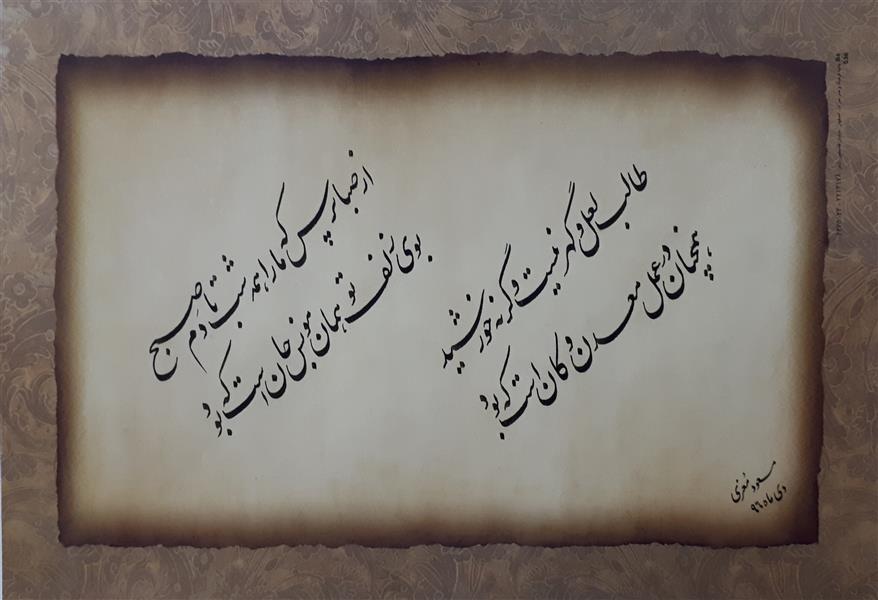 طالب لعل و گهر نیست وگرنه خورشید
همچنان در عمل معدن و کان است که بود
از صبا پرس که ما را همه شب تا دم صبح
بوی زلف تو همان مونس جان است که بود
مسعود معزی
دی ماه ۹۶